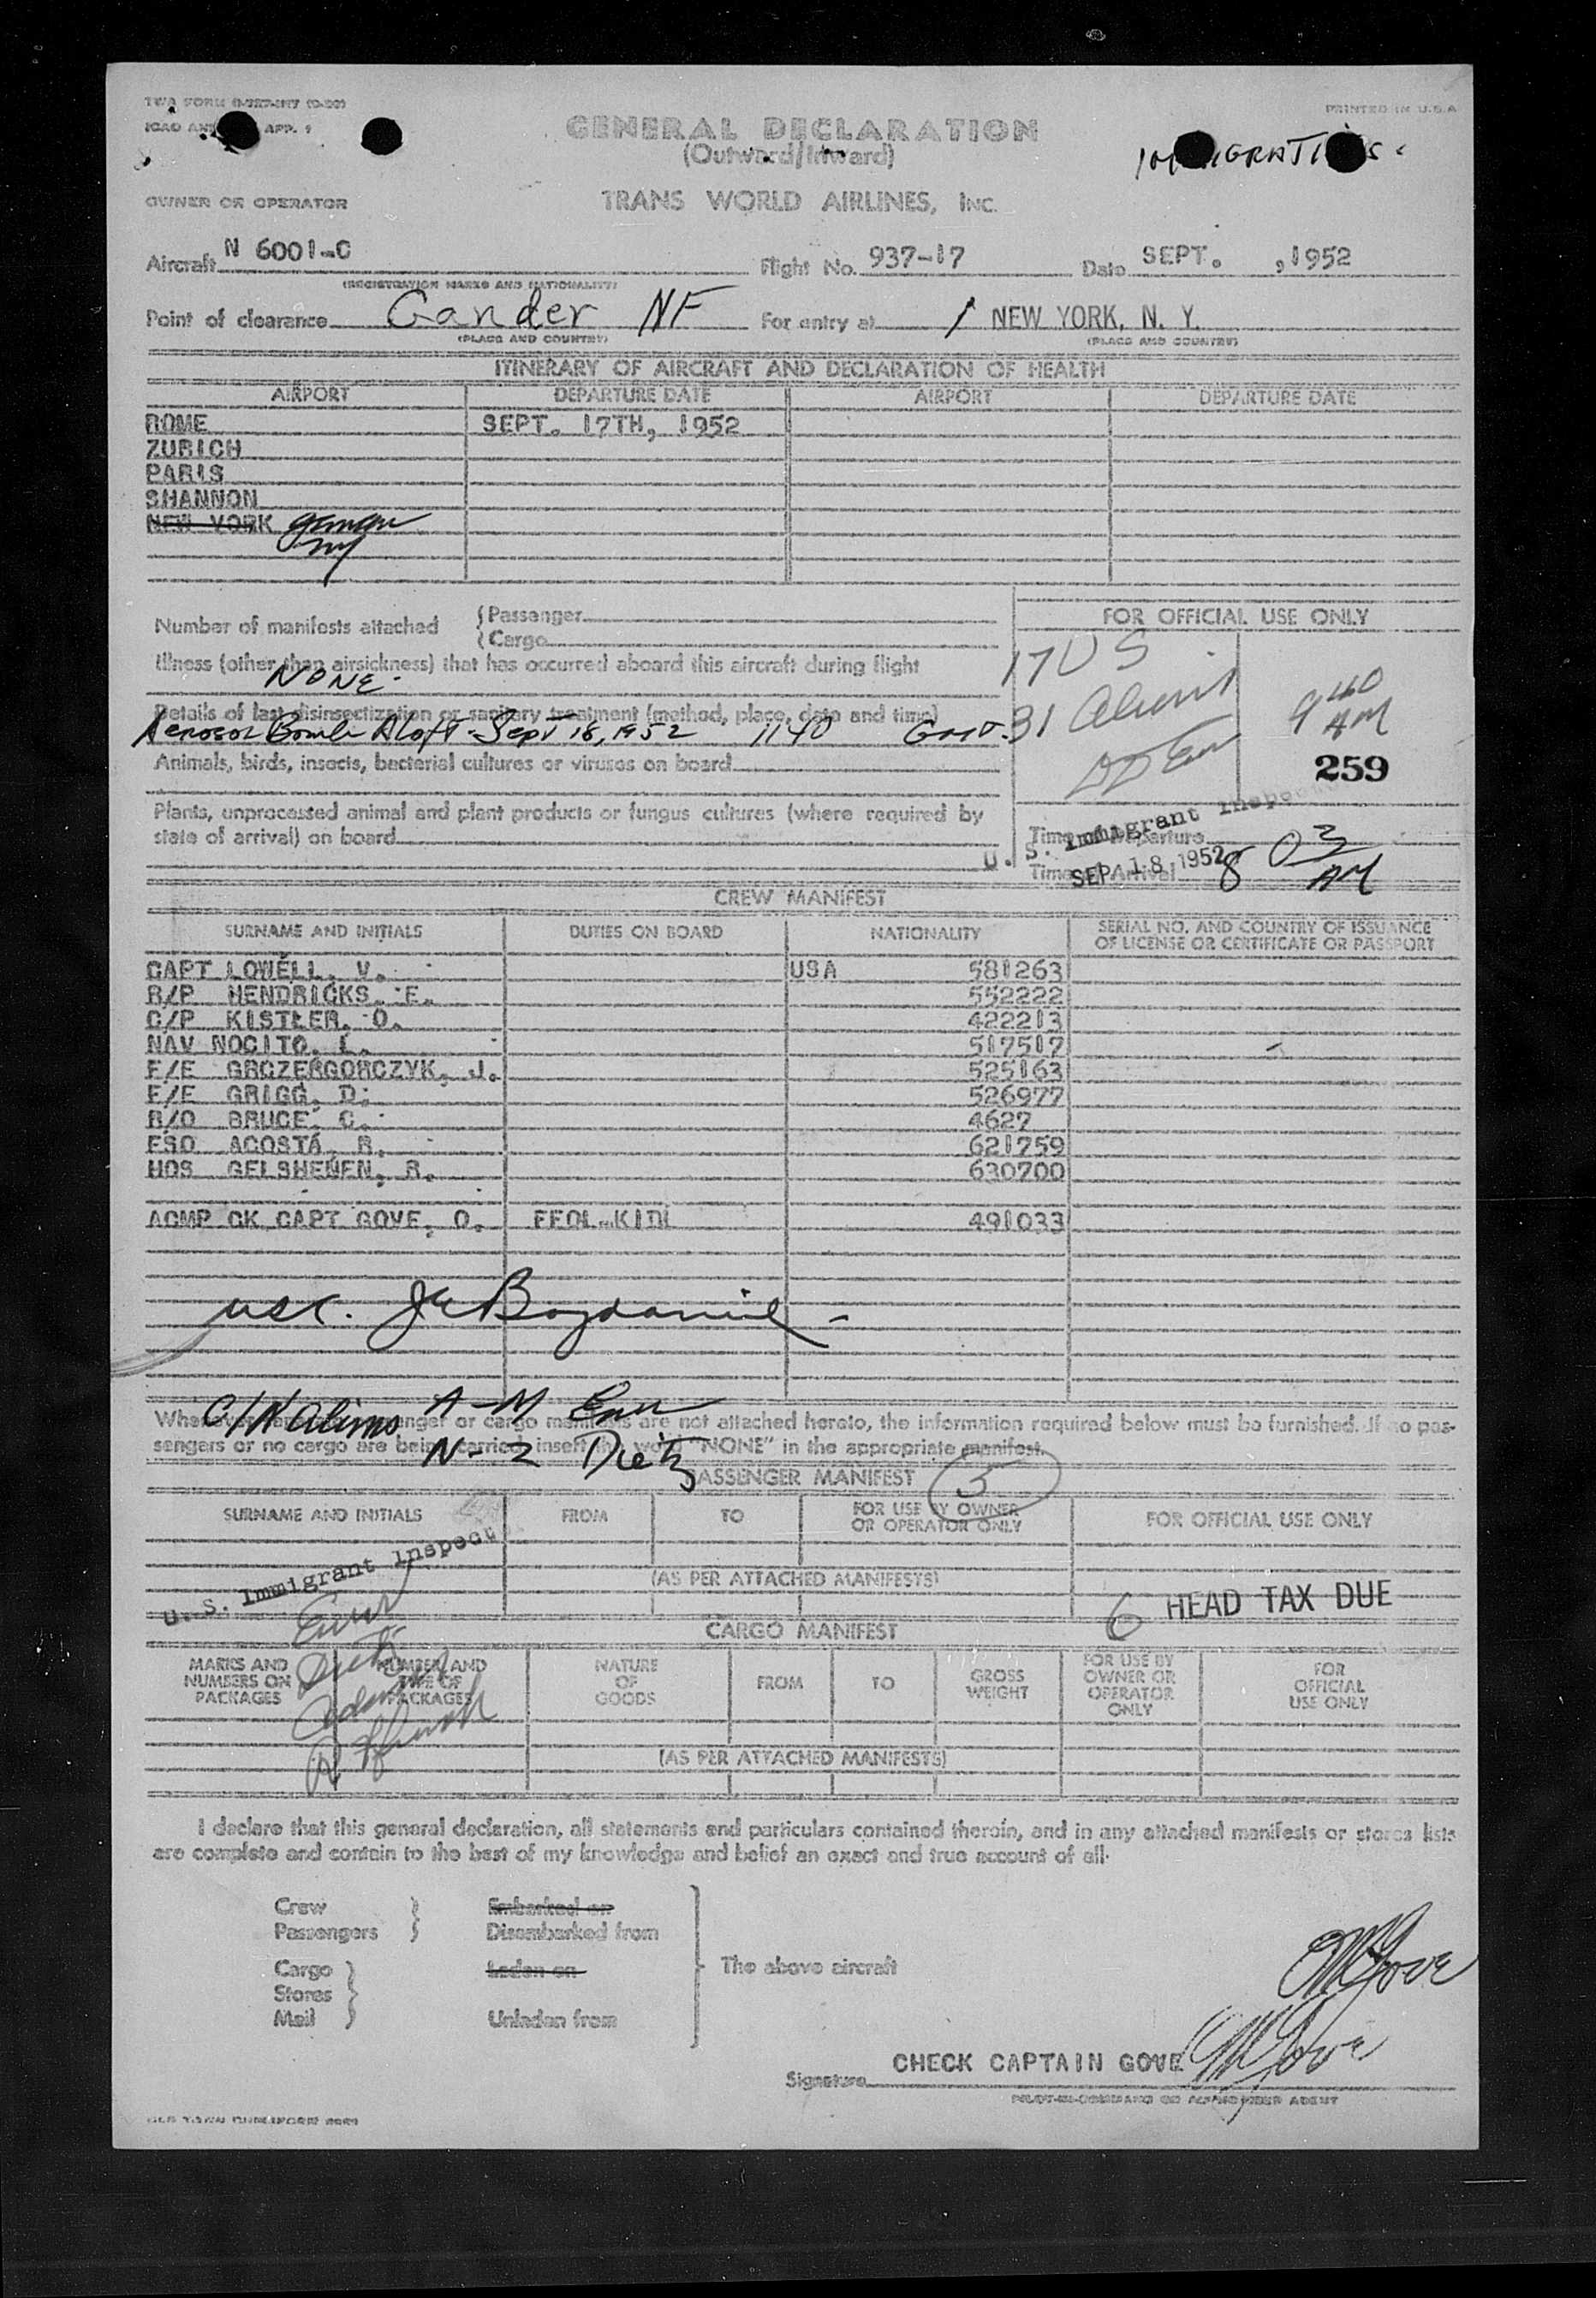 PRINTED IN U.S.A
ICAO APP. 1
GENERAL DECLARATION
(Outward/Inward)
OWNER OR OPERATOR
TRANS WORLD AIRLINES, INC.
Aircraft N 6001-C Flight No. 937-17 Date SEPT. ,1952
(REGISTRATION MARKS AND NATIONALITY)
Point of clearance Gander NF For entry at NEW YORK, N. Y.
(PLACE AND COUNTRY) (PLACE AND COUNTRY)
ITINERARY OF AIRCRAFT AND DECLARATION OF HEALTH
AIRPORT DEPARTURE DATE AIRPORT DEPARTURE DATE
ROME SEPT. 17TH, 1952
ZURICH
PARIS
SHANNON
NEW YORK
NY
Number of manifests attached {Passenger
{Cargo
FOR OFFICIAL USE ONLY
Illness (other than airsickness) that has occurred aboard this aircraft during flight
NONE
17 US
Details of last disinsectization or sanitary treatment (method, place, date and time)
Aerosol Bomb Aloft Sept 18, 1952 1140 GMT
31
9 40 AM
Animals, birds, insects, bacterial cultures or viruses on board
259
Plants, unprocessed animal and plant products or fungus cultures (where required by
state of arrival) on board
Time of Departure
U. S. Immigrant Inspector
Time of Arrival 8 03 AM
SEP 18 1952
CREW MANIFEST
SURNAME AND INITIALS DUTIES ON BOARD NATIONALITY SERIAL NO. AND COUNTRY OF ISSUANCE
OF LICENSE OR CERTIFICATE OR PASSPORT
CAPT LOWELL, V. USA 581263
R/P HENDRICKS, E. 552222
C/P KISTLER, O. 422213
NAV NOCITO, L. 517517
F/E GRCZERGORCZYK, J. 525163
F/E GRIGG, D. 526977
R/O BRUCE, C. 4627
ESO ACOSTA, R. 621759
HOS GELSHENEN, R. 630700
ACMP CK CAPT GOVE, O. 491033
A-M
Whenever passenger or cargo manifests are not attached hereto, the information required below must be furnished. If no pas-
sengers or no cargo are being carried, insert the word "NONE" in the appropriate manifest.
N-2 Dietz
PASSENGER MANIFEST 5
SURNAME AND INITIALS FROM TO FOR USE BY OWNER
OR OPERATOR ONLY FOR OFFICIAL USE ONLY
U. S. Immigrant Inspect
(AS PER ATTACHED MANIFESTS)
6 HEAD TAX DUE
CARGO MANIFEST
MARKS AND
NUMBERS ON
PACKAGES NUMBER AND
TYPE OF
PACKAGES NATURE
OF
GOODS FROM TO GROSS
WEIGHT FOR USE BY
OWNER OR
OPERATOR
ONLY FOR
OFFICIAL
USE ONLY
(AS PER ATTACHED MANIFESTS)
I declare that this general declaration, all statements and particulars contained therein, and in any attached manifests or stores lists
are complete and contain to the best of my knowledge and belief an exact and true account of all.
Crew Embarked on
Passengers Disembarked from
Cargo Laden on The above aircraft
Stores
Mail Unladen from
OMGove
CHECK CAPTAIN GOVE OMGove
Signature
PILOT-IN-COMMAND OR AUTHORIZED AGENT